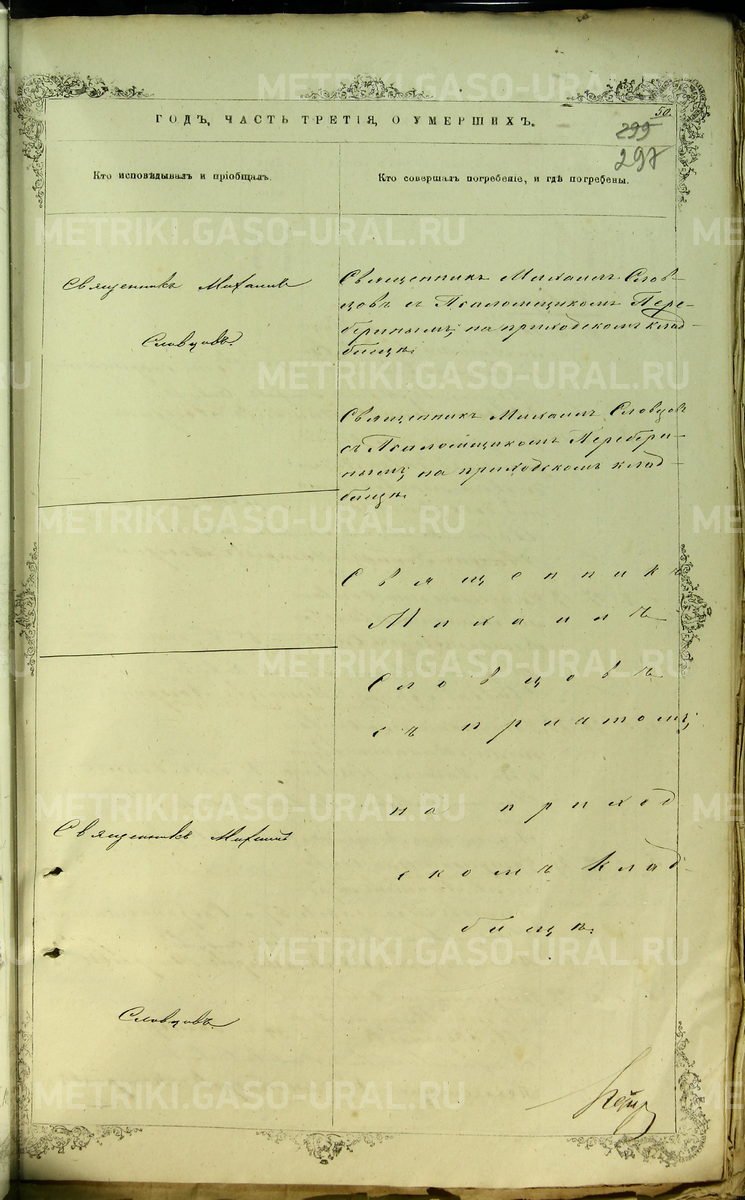 ГОДЪ, ЧАСТЬ ТРЕТІЯ, О УМЕРШИХЪ.
50.
299
297
Кто исповѣдывалъ и пріобщалъ.
Кто совершалъ погребеніе, и гдѣ погребены.
Священникъ Михаилъ
Словцовъ.
Священникъ Михаилъ Слов-
цовъ съ Псаломщикомъ Пере-
беринымъ; на приходскомъ клад-
бищѣ.
Священникъ Михаилъ Словцовъ
съ Псаломщикомъ Перебери-
нымъ; на приходскомъ клад-
бищѣ.
Священникъ
Михаилъ
Словцовъ
съ причтомъ;
на приход
скомъ клад-
бищѣ.
Священникъ Михаилъ
Словцовъ.
METRIKI.GASO-URAL.RU